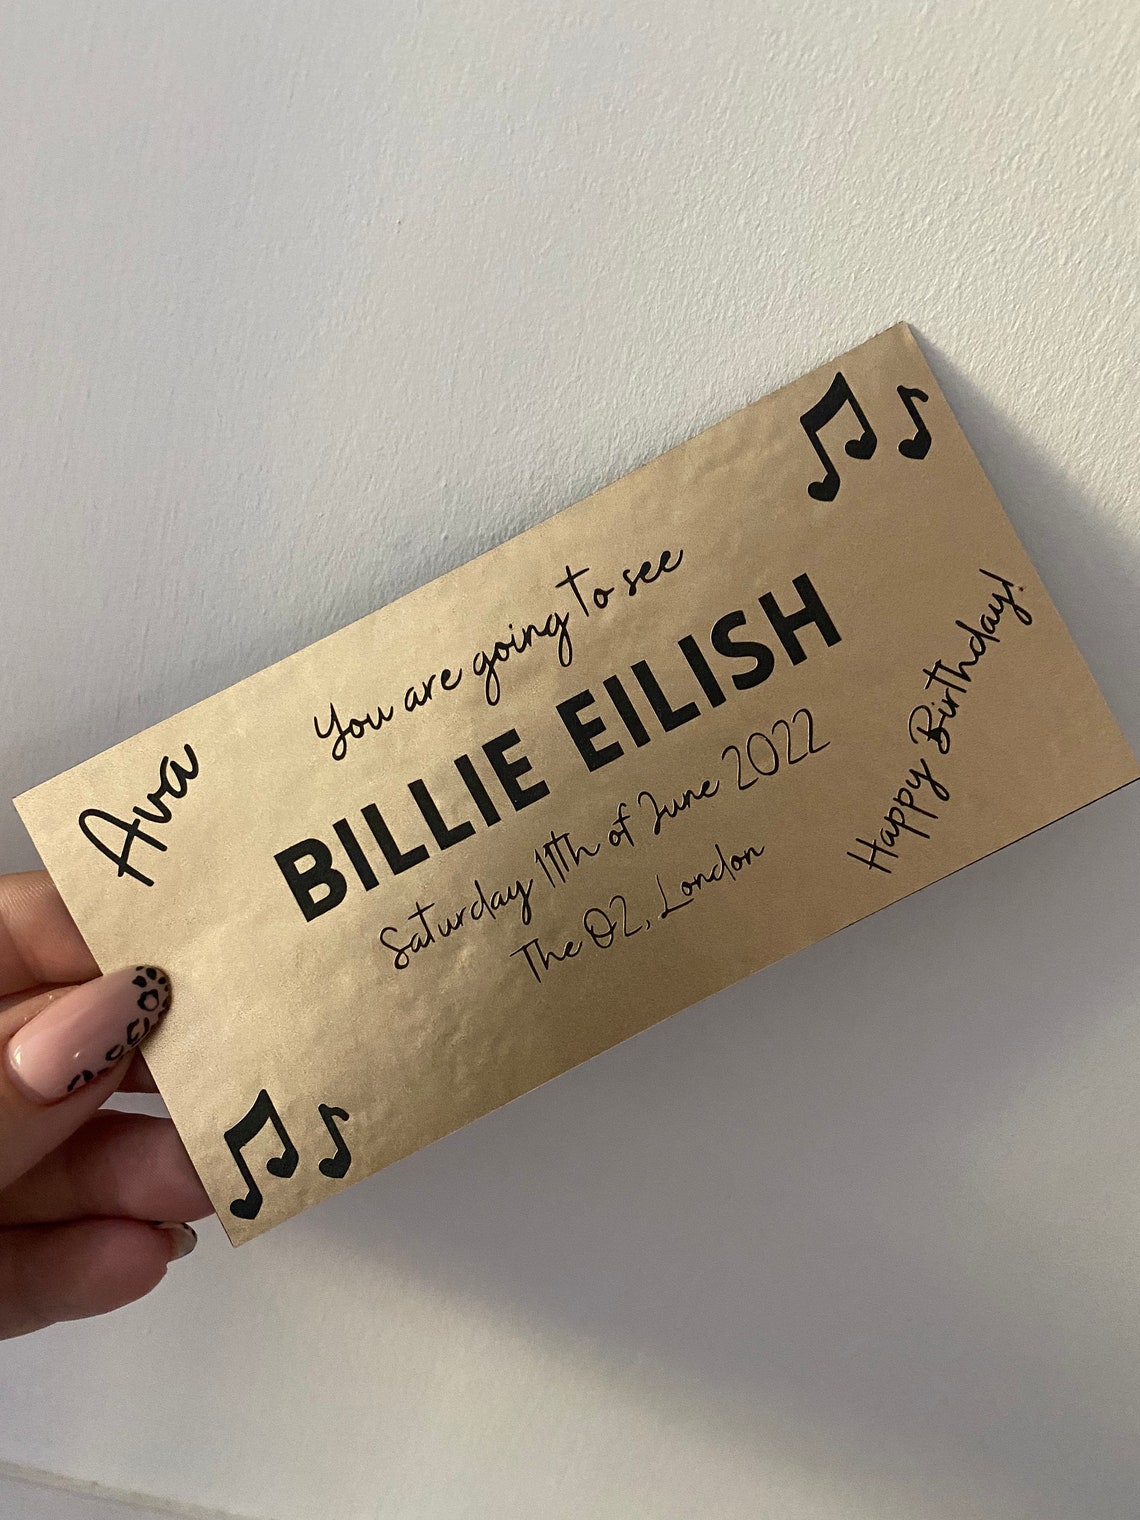 Ava
You are going to see
BILLIE EILISH
Saturday 11th of June 2022
The O2, London
Happy Birthday!